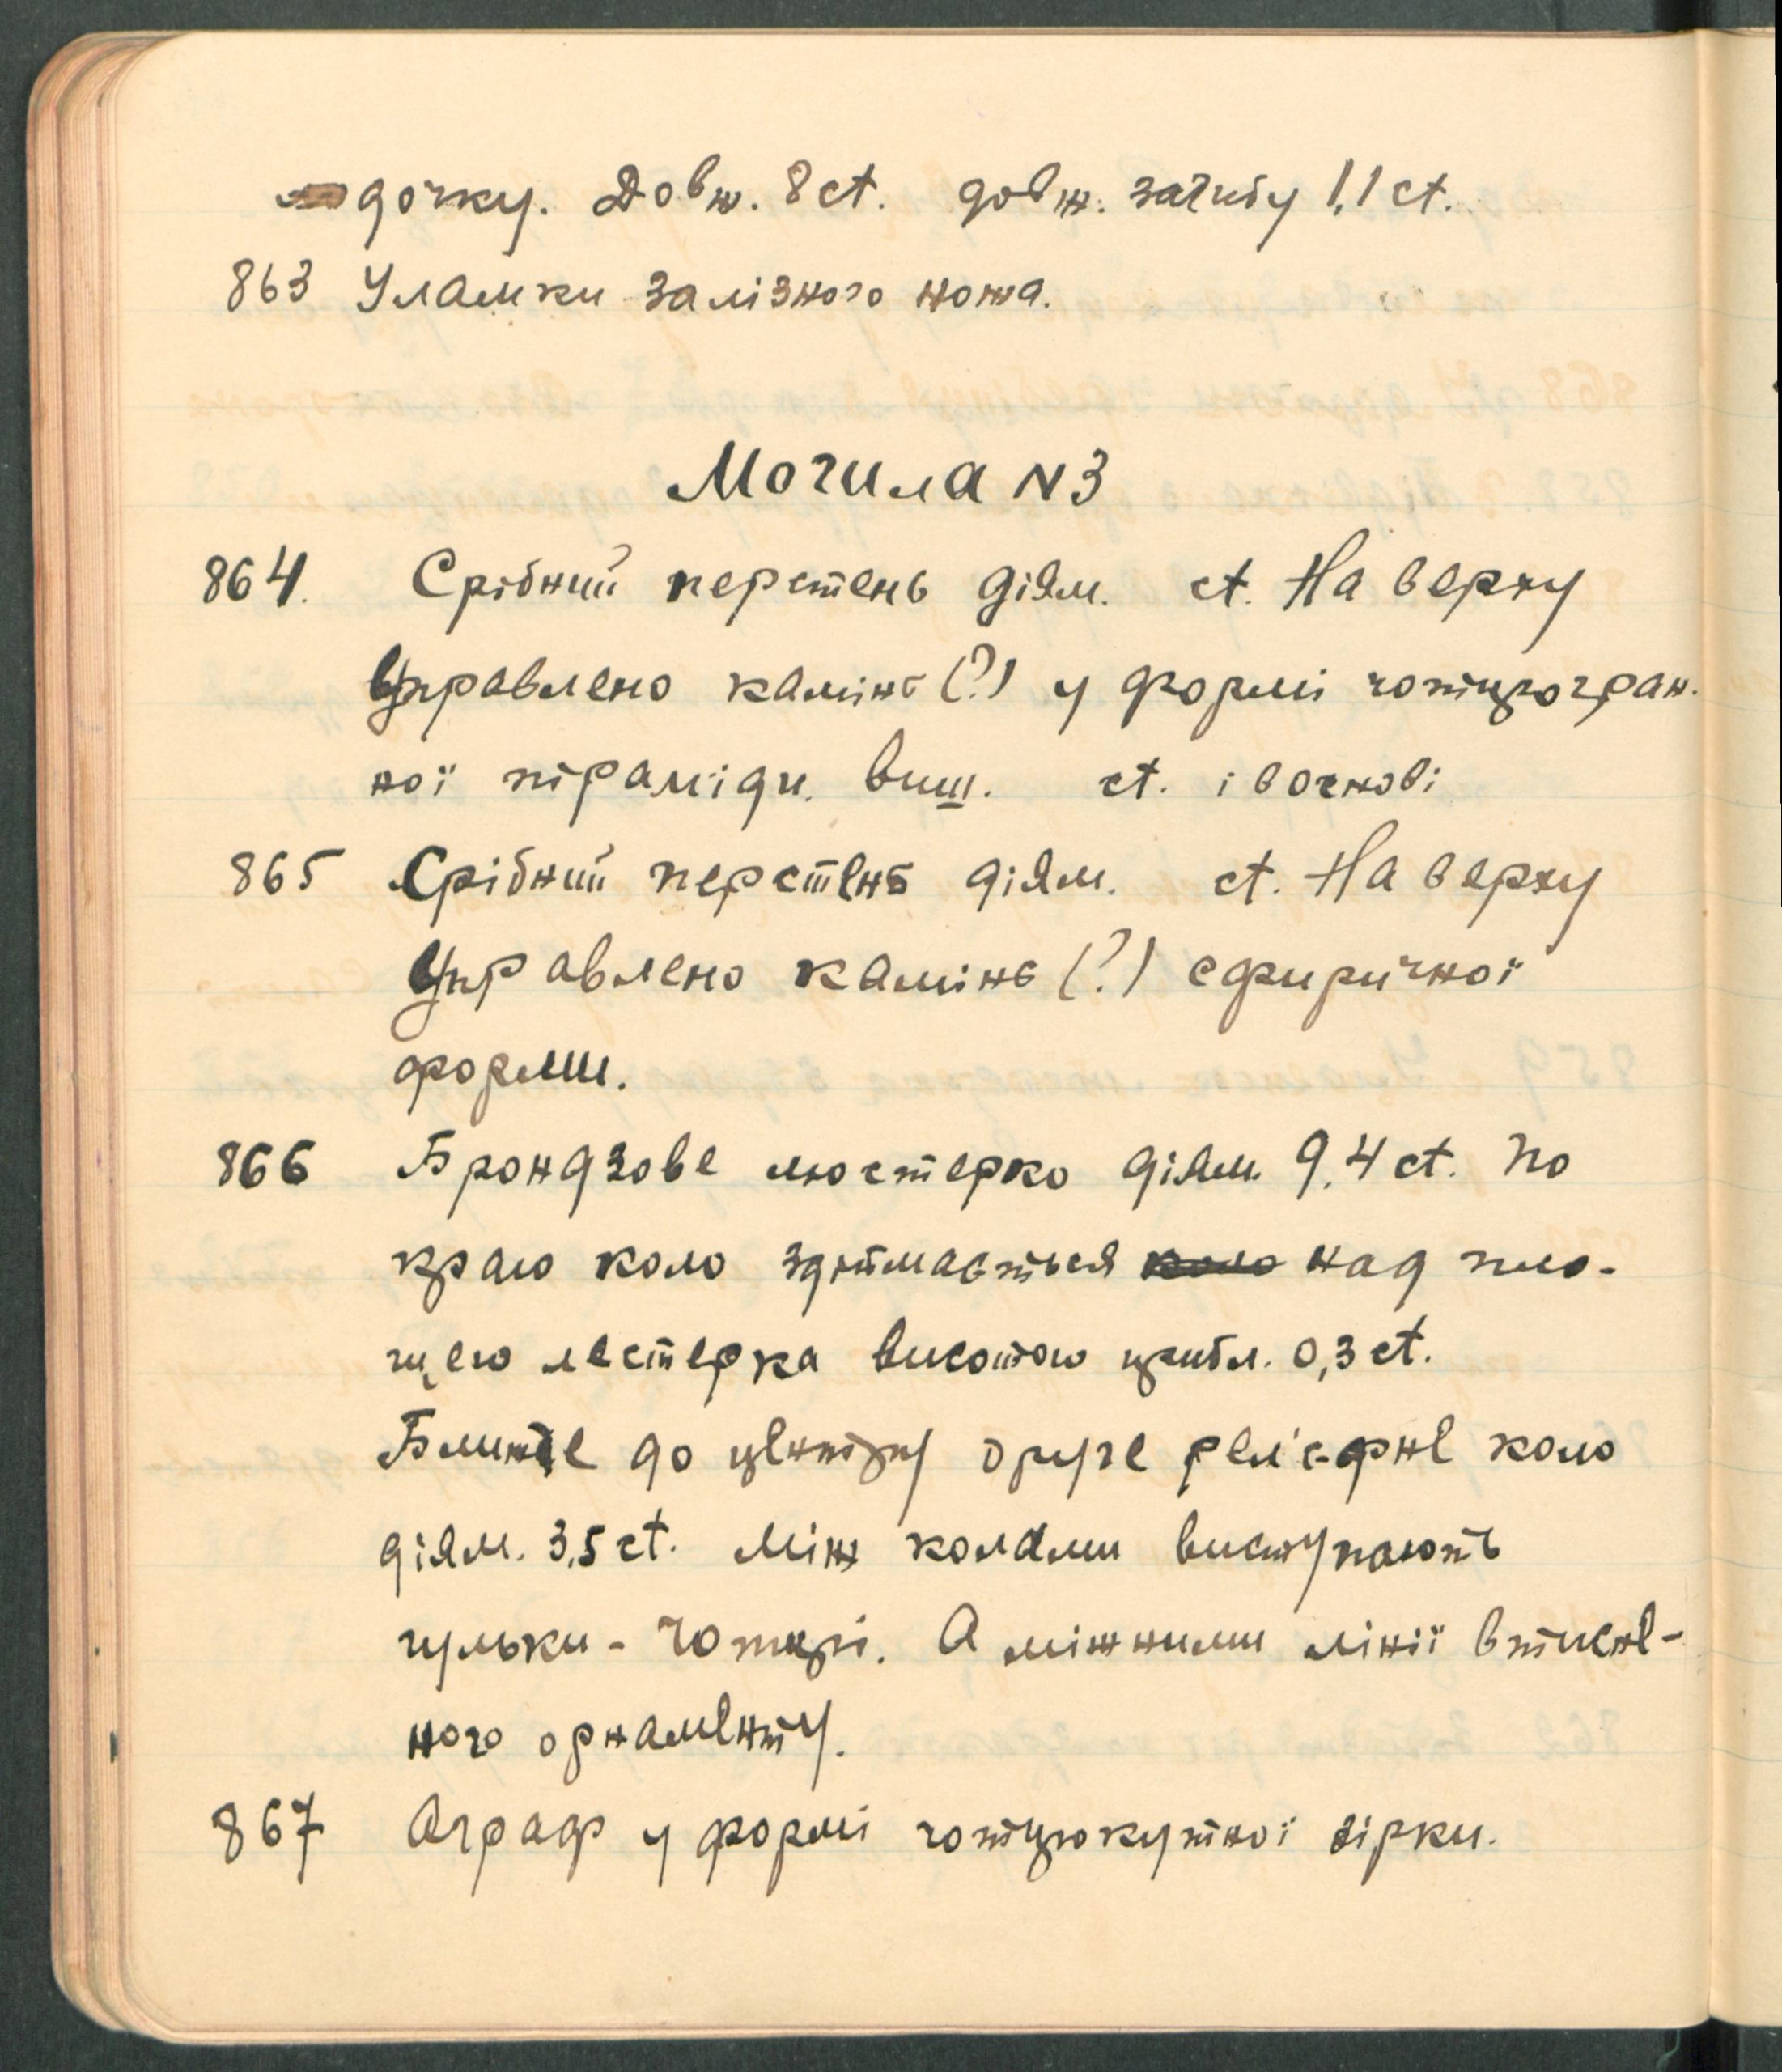 дочку. Довж. 8 ct. довж. загибу 1,1 ct.
863 Уламки залізного ножа.
Могила N 3
864. Срібний перстень діям. ct. На верху
вправлено камінь (?) у формі чотирогран-
ної піраміди. виш. ct. і в основі
865 Срібний перстень діям. ct. На верху
вправлено камінь (?) сфиричної
форми.
866 Брондзове люстерко діям. 9,4 ct. По
краю коло здіймається коло над пло-
щею лестерка висотою прибл. 0,3 ct.
Ближче до центру друге рел'єфне коло
діям. 3,5 ct. Між колами виступають
гульки - чотирі. А між ними лінії втисне-
ного орнаменту.
867 Аграф у формі чотирокутної зірки.